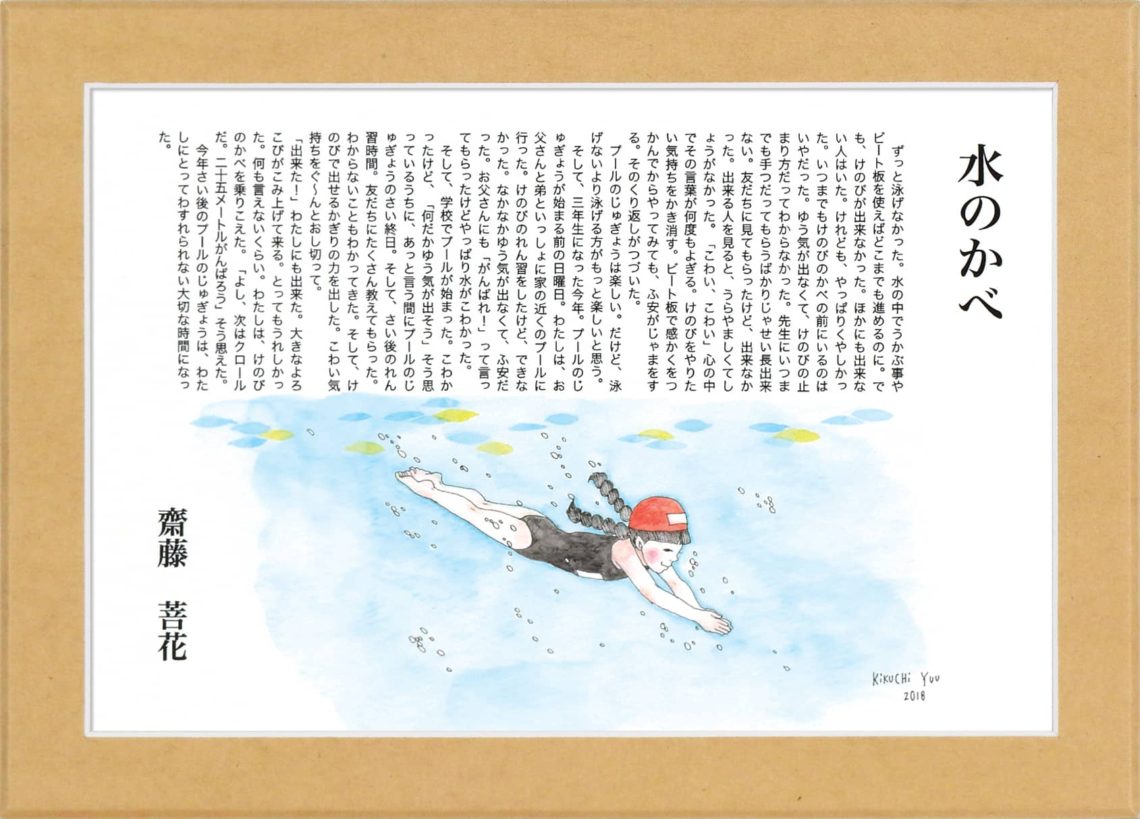 水のかべ
ずっと泳げなかった。水の中でうかぶ事や
ビート板を使えばどこまでも進めるのに。で
も、けのびが出来なかった。ほかにも出来な
い人はいた。けれども、やっぱりくやしかっ
た。いつまでもけのびのかべの前にいるのは
いやだった。ゆう気が出なくて、けのびの止
まり方だってわからなかった。先生にいつま
でも手つだってもらうばかりじゃせい長出来
ない。友だちに見てもらったけど、出来なか
った。出来る人を見ると、うらやましくてし
ょうがなかった。「こわい、こわい」心の中
でその言葉が何度もよぎる。けのびをやりた
い気持ちをかき消す。ビート板で感かくをつ
かんでからやってみても、ふ安がじゃまをす
る。そのくり返しがつづいた。
プールのじゅぎょうは楽しい。だけど、泳
げないより泳げる方がもっと楽しいと思う。
そして、三年生になった今年。プールのじ
ゅぎょうが始まる前の日曜日。わたしは、お
父さんと弟といっしょに家の近くのプールに
行った。けのびのれん習をしたけど、できな
かった。なかなかゆう気が出なくて、ふ安だ
った。お父さんにも「がんばれ!」って言っ
てもらったけどやっぱり水がこわかった。
そして、学校でプールが始まった。こわか
ったけど、「何だかゆう気が出そう」そう思
っているうちに、あっと言う間にプールのじ
ゅぎょうのさい終日。そして、さい後のれん
習時間。友だちにたくさん教えてもらった。
わからないこともわかってきた。そして、け
のびで出せるかぎりの力を出した。こわい気
持ちをぐ〜んとおし切って。
「出来た!」わたしにも出来た。大きなよろ
こびがこみ上げて来る。とってもうれしかっ
た。何も言えないくらい。わたしは、けのび
のかべを乗りこえた。「よし、次はクロール
だ。二十五メートルがんばろう」そう思えた。
今年さい後のプールのじゅぎょうは、わた
しにとってわすれられない大切な時間になっ
た。
齋藤 菩花
KiKUCHi YUU
2018